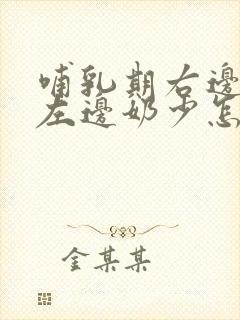 哺乳期右邊
左邊奶少怎
金某某